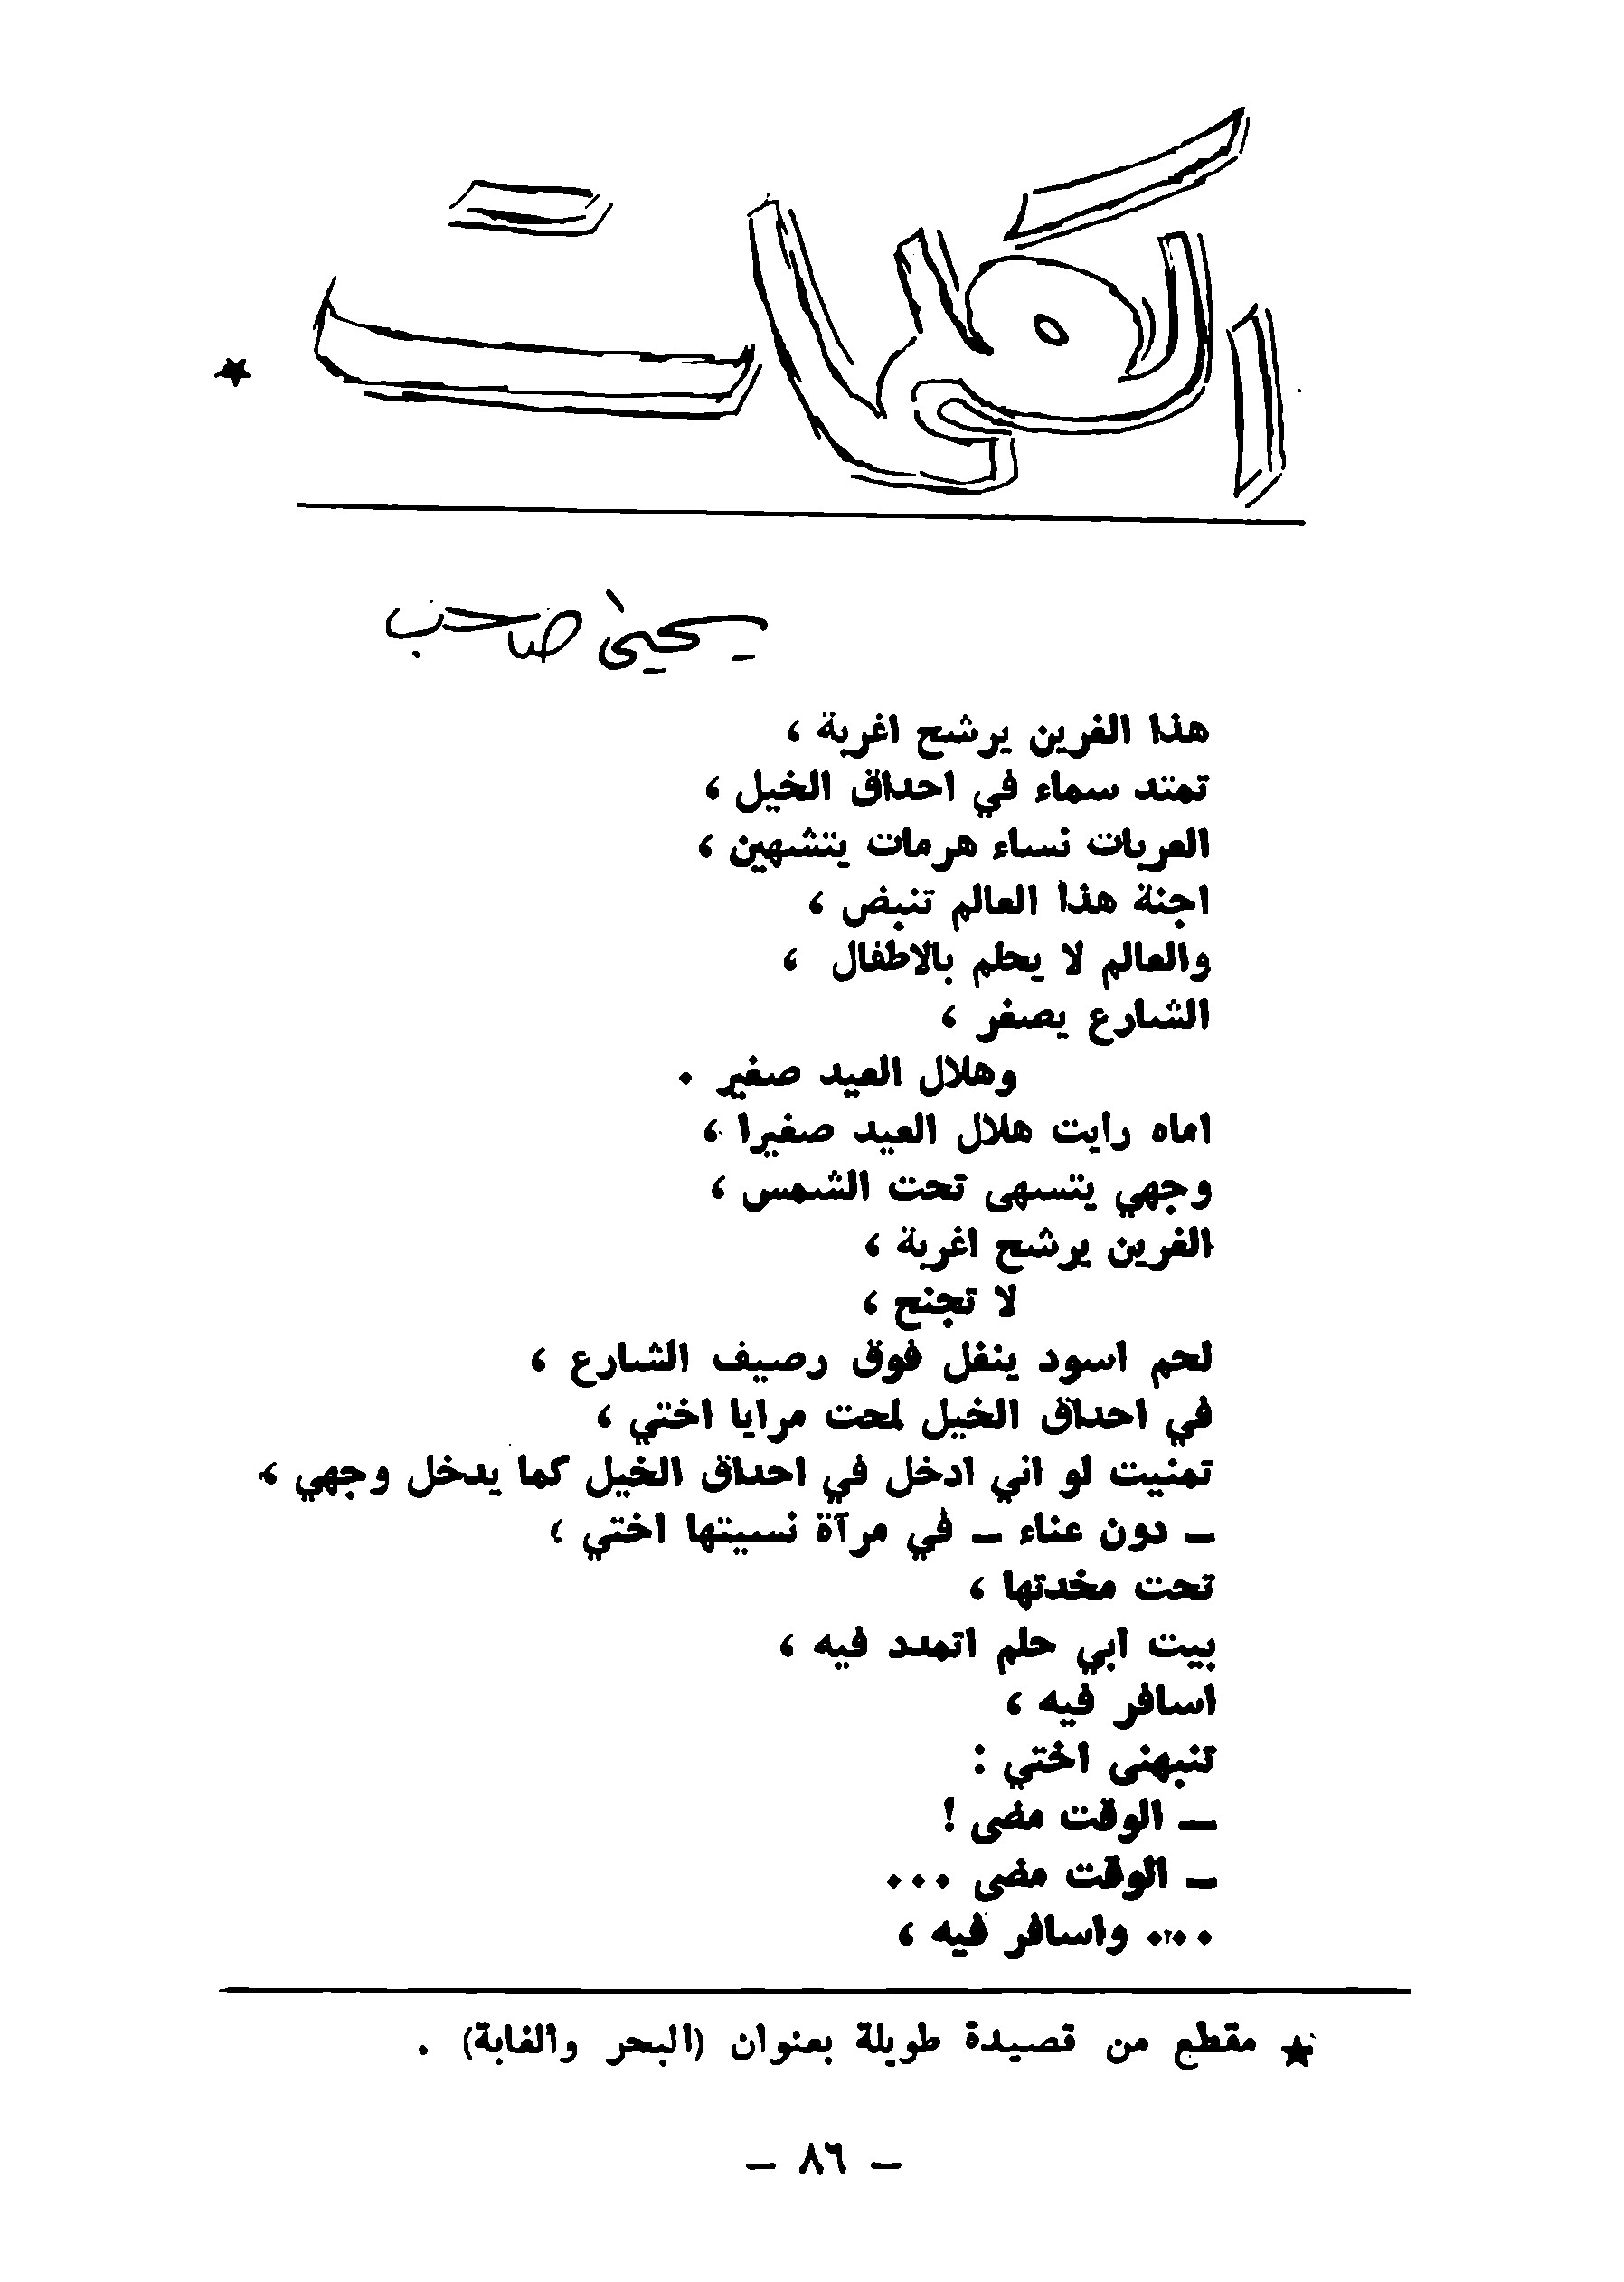 ★
يحيى صاحب
هذا الغرين يرشح اغربة ،
تمتد سماء في احداق الخيل ،
العربات نساء هرمات يتشهين ،
اجنة هذا العالم تنبض ،
والعالم لا يحلم بالاطفال ،
الشارع يصفر ،
وهلال العيد صغير .
اماه رايت هلال العيد صغيرا ،
وجهي يتسهى تحت الشمس ،
الغرين يرشح اغربة ،
لا تجنح ،
لحم اسود ينغل فوق رصيف الشارع ،
في احداق الخيل لمحت مرايا اختي ،
تمنيت لو اني ادخل في احداق الخيل كما يدخل وجهي ،
ــ دون عناء ــ في مرآة نسيتها اختي ،
تحت مخدتها ،
بيت ابي حلم اتمدد فيه ،
اسافر فيه ،
تنبهنى اختي :
ــ الوقت مضى !
ــ الوقت مضى ...
... واسافر فيه ،
★ مقطع من قصيدة طويلة بعنوان (البحر والغابة) .
ــ ٨٦ ــ